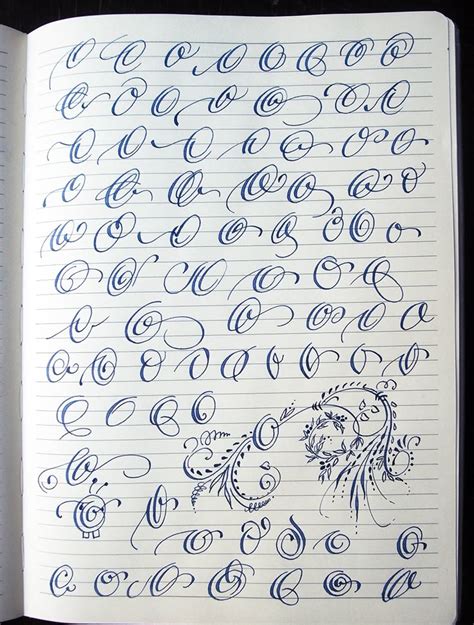 O O O O O O O O
O O O O O O O
O O O O O O O
O O O O O O O
O O O O O O O O
O O O O O O
O O O O O O O
O O O O O O O O O O
O O O O O
O
O O
O O O O O O
O O O O O O O O